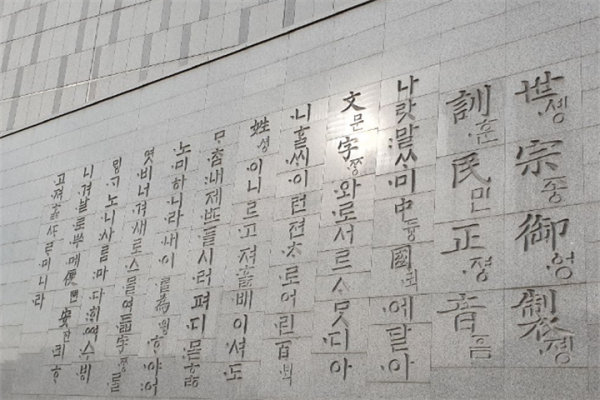 世솅宗종御엉製졩
訓훈民민正졍音음
나랏말ᄊᆞ미中듕國귁에달아
文문字ᄍᆞᆼ와로서르ᄉᆞᄆᆞᆺ디아
니ᄒᆞᆯᄊᆡ이런젼ᄎᆞ로어린百ᄇᆡᆨ
姓셩이니르고져ᄒᆞᇙ배이셔도
ᄆᆞᄎᆞᆷ내제ᄠᅳ들시러펴디몯ᄒᆞᇙ
노미하니라내이ᄅᆞᆯ爲윙ᄒᆞ야어
엿비너겨새로스믈여듧字ᄍᆞᆼᄅᆞᆯ
ᄆᆡᇰᄀᆞ노니사ᄅᆞᆷ마다ᄒᆡᅇᅧ수ᄫᅵ
니겨날로ᄡᅮ메便뼌安ᅙᅡᆫ킈ᄒᆞ
고져ᄒᆞᇙᄯᆞᄅᆞ미니라